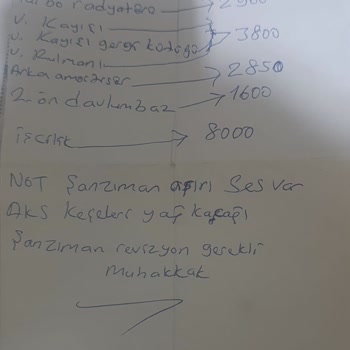 Turbo radyatörü → 2900
V. Kayışı
V. Kayışı gergi kütüğü → 3800
V. Rulmanı
Arka amortisör → 2850
2 ön davlumbaz → 1600
işcilik → 8000
NOT Şanzıman aşırı Ses var
AKS Keçeleri yağ Kaçağı
Şanzıman revizyon gerekli
Muhakkak